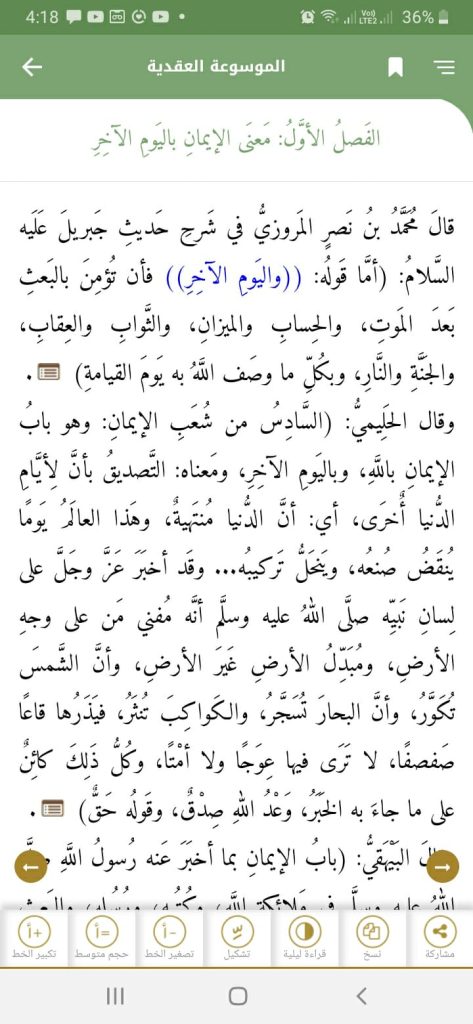 4:18
Vo)) LTE2 36%
الموسوعة العقدية
الفَصلُ الأوَّلُ: مَعنَى الإيمانِ باليَومِ الآخِرِ
قالَ مُحَمَّدُ بنُ نَصرٍ المَروزيُّ في شَرحِ حَديثِ جَبريلَ عَلَيه
السَّلامُ: (أمَّا قَولُه: ((واليَومِ الآخِرِ)) فأن تُؤمِنَ بالبَعثِ
بَعدَ المَوتِ، والحِسابِ والميزانِ، والثَّوابِ والعِقابِ،
والجَنَّةِ والنَّارِ، وبكُلِّ ما وصَف اللَّهُ به يَومَ القيامةِ) .
وقال الحَليميُّ: (السَّادِسُ من شُعَبِ الإيمانِ: وهو بابُ
الإيمانِ باللَّهِ، وباليَومِ الآخِرِ، ومَعناه: التَّصديقُ بأنَّ لِأيَّامِ
الدُّنيا أُخرَى، أي: أنَّ الدُّنيا مُنتَهيةٌ، وهَذا العالَمُ يَومًا
يُنقَضُ صُنعُه، ويَنحَلُّ تَركيبُه... وقَد أخبَرَ عَزَّ وجَلَّ على
لِسانِ نَبيِّه صلَّى اللهُ عليه وسلَّم أنَّه مُفني مَن على وجهِ
الأرضِ، ومُبَدِّلُ الأرضِ غَيرَ الأرضِ، وأنَّ الشَّمسَ
تُكَوَّرُ، وأنَّ البحارَ تُسَجَّرُ، والكَواكِبَ تُنثَرُ، فيَذَرُها قاعًا
صَفصَفًا، لا تَرَى فيها عِوَجًا ولا أمْتًا، وكُلُّ ذَلِكَ كائِنٌ
على ما جاءَ به الخَبَرُ، وَعْدُ اللهِ صِدْقٌ، وقَولُه حَقٌّ) .
البَيْهَقيُّ: (بابُ الإيمانِ بما أخبَرَ عَنه رَسولُ اللَّهِ
اللهُ عليه وسلَّم في مَلائِكةِ اللَّهِ، وكُتُبِه، ورُسُلِه، والبَعثِ
مشاركة
نسخ
قراءة ليلية
تشكيل
تصغير الخط
حجم متوسط
تكبير الخط